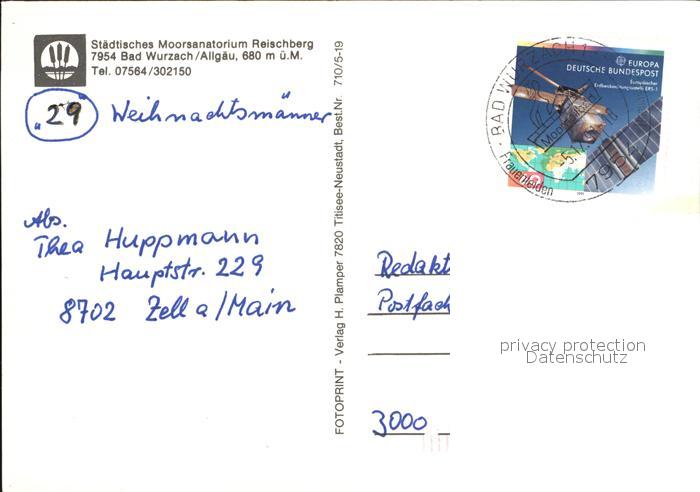 Städtisches Moorsanatorium Reischberg
7954 Bad Wurzach/Allgäu, 680 m ü.M.
Tel. 07564/302150
„29“ Weihnachtsmänner
Abs.
Thea Huppmann
Hauptstr. 229
8702 Zell a/Main
FOTOPRINT - Verlag H. Plamper 7820 Titisee-Neustadt, Best.Nr. 710/5-19
EUROPA
DEUTSCHE BUNDESPOST
Europäischer
Erdbeobachtungssatellit ERS-1
BAD WURZACH 1
7954
Frauenleiden
Redakt
Postfach
3000
privacy protection
Datenschutz